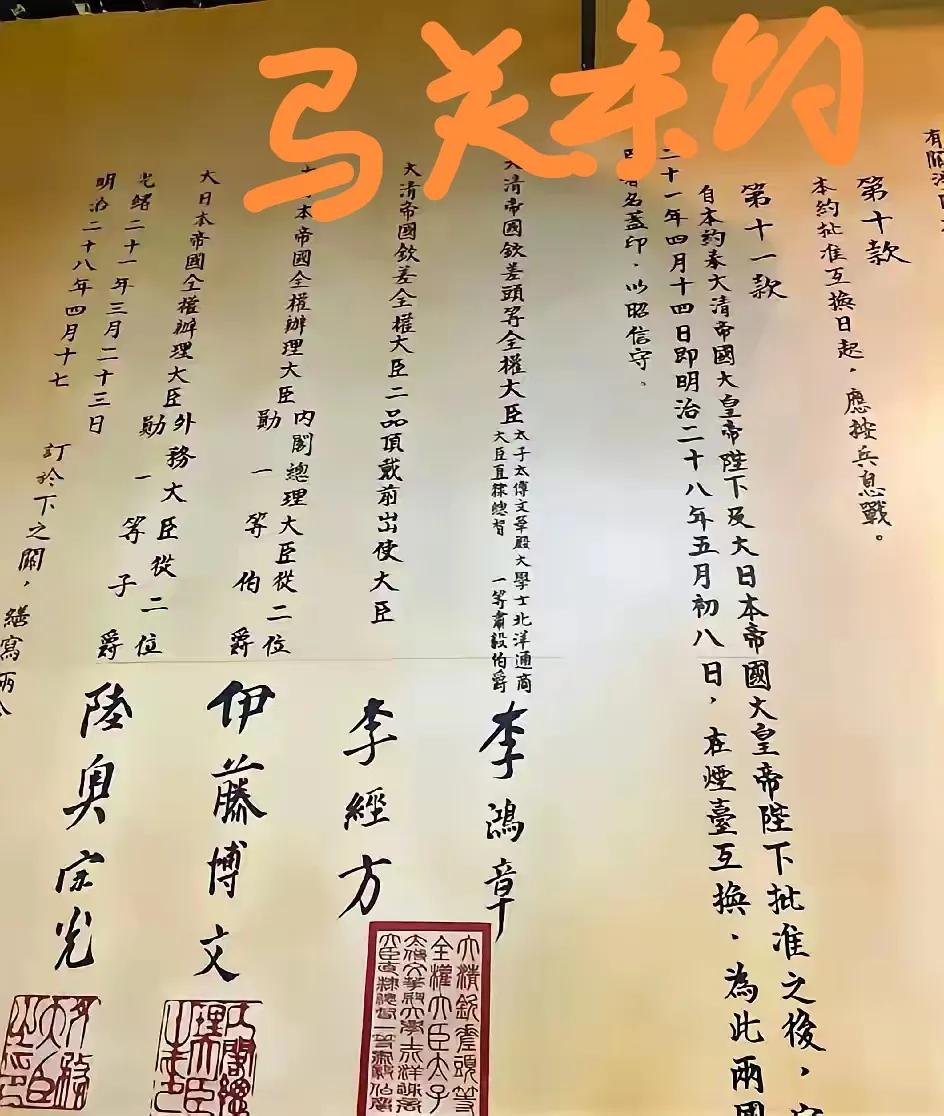 马关条约
第十款
本约批准互换日起，應按兵息戰。
第十一款
自本約奉大清帝國大皇帝陛下及大日本帝國大皇帝陛下批准之後，
二十一年四月十四日即明治二十八年五月初八日，在煙臺互換．為此兩國
名蓋印．以昭信守。
大清帝國欽差頭等全權大臣
太子太傅文華殿大學士北洋通商
大臣直隸總督 一等肅毅伯爵
李鴻章
大清帝國欽差全權大臣二品頂戴前出使大臣
李經方
本帝國全權辦理大臣
內閣總理大臣從二位
勛一等伯爵
伊藤博文
大日本帝國全權辦理大臣
外務大臣從二位
勛一等子爵
陸奧宗光
光緒二十一年三月二十三日
明治二十八年四月十七
訂於下之關，繕寫兩
大清欽差頭等
全權大臣太子
太傅文華殿大學士北洋通商
大臣直隸總督一等肅毅伯爵